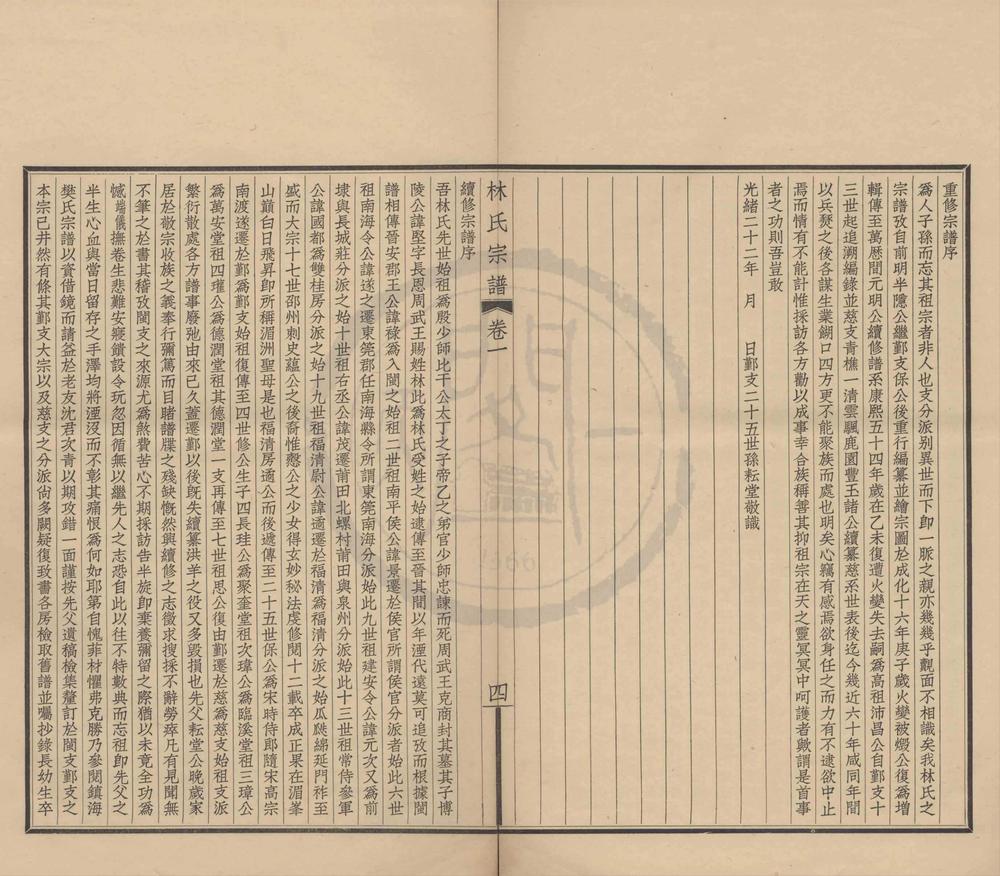 重修宗譜序
爲人子孫而忘其祖宗者非人也支分派别異世而下卽一脈之親亦幾幾乎覿面不相識矣我林氏之
宗譜攷自前明半隱公繼鄞支保公後重行編纂並繪宗圖於成化十六年庚子歲火變被燬公復爲增
輯傳至萬厯間元明公續修譜系康熙五十四年歲在乙未復遭火變失去嗣爲高祖沛昌公自鄞支十
三世起追溯編錄並慈支青樵一清雲颿鹿園豐玉諸公續纂慈系世表後迄今幾近六十年咸同年間
以兵燹之後各謀生業餬口四方更不能聚族而處也明矣心竊有感焉欲身任之而力有不逮欲中止
焉而情有不能計惟採訪各方勸以成事幸合族稱善其抑祖宗在天之靈冥冥中呵護者歟謂是首事
者之功則吾豈敢
光緒二十二年　月　　日鄞支二十五世孫耘堂敬識
林氏宗譜 卷一 四
續修宗譜序
吾林氏先世始祖爲殷少師比干公太丁之子帝乙之弟官少師忠諫而死周武王克商封其墓其子博
陵公諱堅字長恩周武王賜姓林此爲林氏受姓之始逮傳至晉其間以年湮代遠莫可追攷而根據閩
譜相傳晉安郡王公諱祿爲入閩之始祖二世祖南平侯公諱景遷於侯官所謂侯官分派者始此六世
祖南海令公諱遂之遷東筦郡任南海縣令所謂東筦南海分派始此九世祖建安令公諱元次又爲前
埭與長城莊分派之始十世祖右丞公諱茂遷莆田北螺村莆田與泉州分派始此十三世祖常侍參軍
公諱國都爲雙桂房分派之始十九世祖福清尉公諱適遷於福清爲福清分派之始瓜瓞綿延門祚至
盛而大宗十七世邵州刺史蘊公之後裔惟慤公之少女得玄妙秘法虔修閱十二載卒成正果在湄峯
山巔白日飛昇卽所稱湄洲聖母是也福清房適公而後遞傳至二十五世保公爲宋時侍郎隨宋高宗
南渡遂遷於鄞爲鄞支始祖復傳至四世修公生子四長珪公爲聚奎堂祖次瑋公爲臨溪堂祖三璋公
爲萬安堂祖四瓘公爲德潤堂祖其德潤堂一支再傳至七世祖思公復由鄞遷於慈爲慈支始祖支派
繁衍散處各方譜事廢弛由來已久葢遷鄞以後旣失續纂洪羊之役又多毀損也先父耘堂公晚歲家
居於敬宗收族之義奉行彌篤而目睹譜牒之殘缺慨然興續修之志徵求搜採不辭勞瘁凡有見聞無
不筆之於書其稽攷閩支之來源尤爲煞費苦心不期採訪告半旋卽棄養彌留之際猶以未竟全功爲
憾端儀撫卷生悲難安寢饋設令玩忽因循無以繼先人之志恐自此以往不特數典而忘祖卽先父之
半生心血與當日留存之手澤均將湮沒而不彰其痛恨爲何如耶第自愧菲材懼弗克勝乃參閱鎮海
樊氏宗譜以資借鏡而請益於老友沈君次青以期攻錯一面謹按先父遺稿檢集釐訂於閩支鄞支之
本宗已井然有條其鄞支大宗以及慈支之分派尙多闕疑復致書各房檢取舊譜並囑抄錄長幼生卒